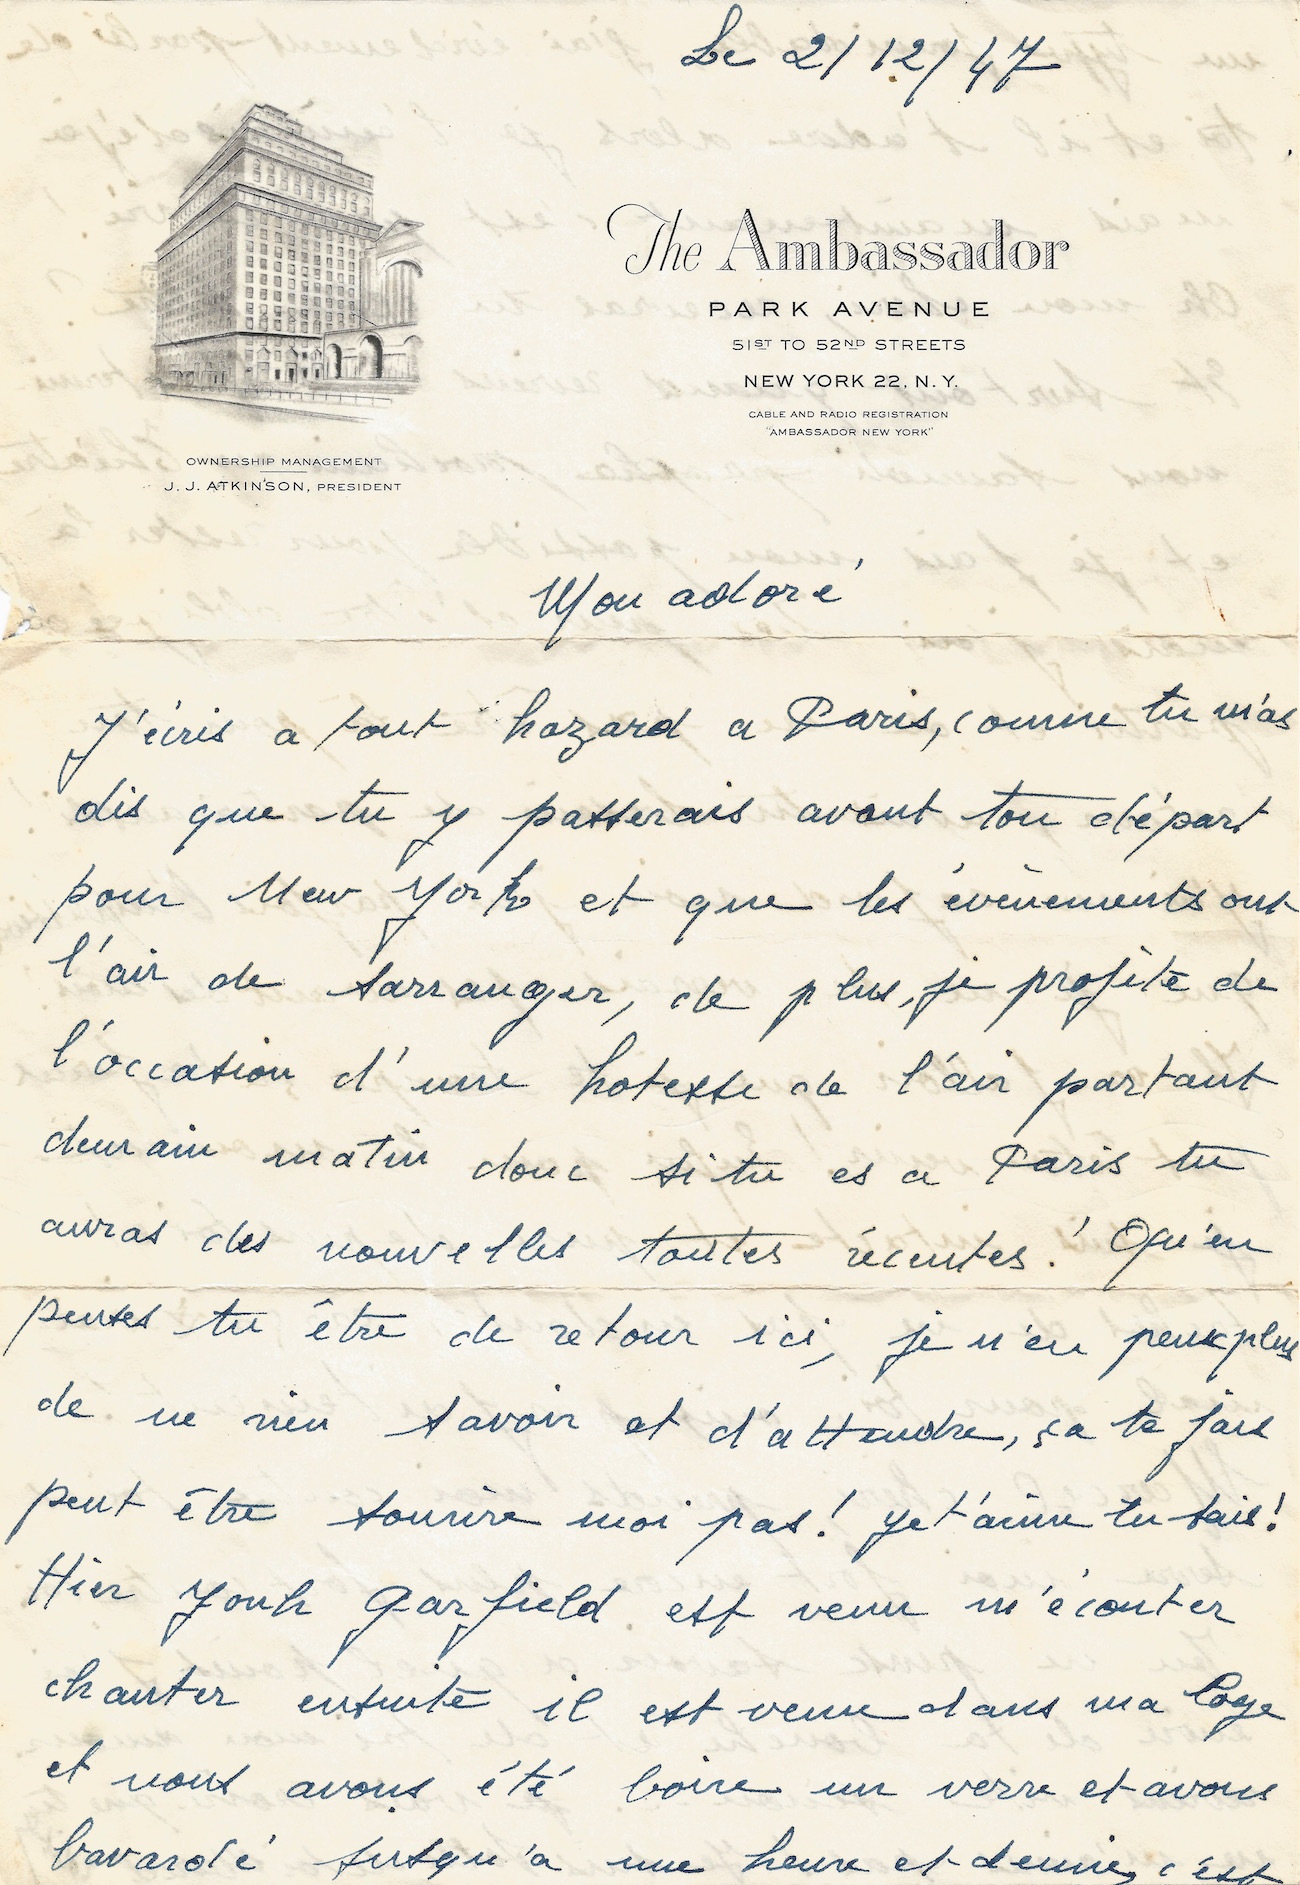 Le 2/12/47
The Ambassador
PARK AVENUE
51ST TO 52ND STREETS
NEW YORK 22, N.Y.
CABLE AND RADIO REGISTRATION
"AMBASSADOR NEW YORK"
OWNERSHIP MANAGEMENT
J. J. ATKINSON, PRESIDENT
Mon adoré
J'écris a tout hazard a Paris, comme tu m'as
dis que tu y passerais avant ton départ
pour New York et que les évènements ont
l'air de sarranger, de plus, je profite de
l'occasion d'une hotesse de l'air partant
demain matin donc si tu es a Paris tu
auras des nouvelles toutes récentes! Qu'en
penses tu être de retour ici, je n'en peux plus
de ne rien savoir et d'attendre, ça te fais
peut être sourire moi pas! je t'aime tu sais!
Hier Jonh Garfield est venu m'écouter
chanter ensuite il est venu dans ma loge
et nous avons été boire un verre et avons
bavardé jusqu'a une heure et demie, c'est